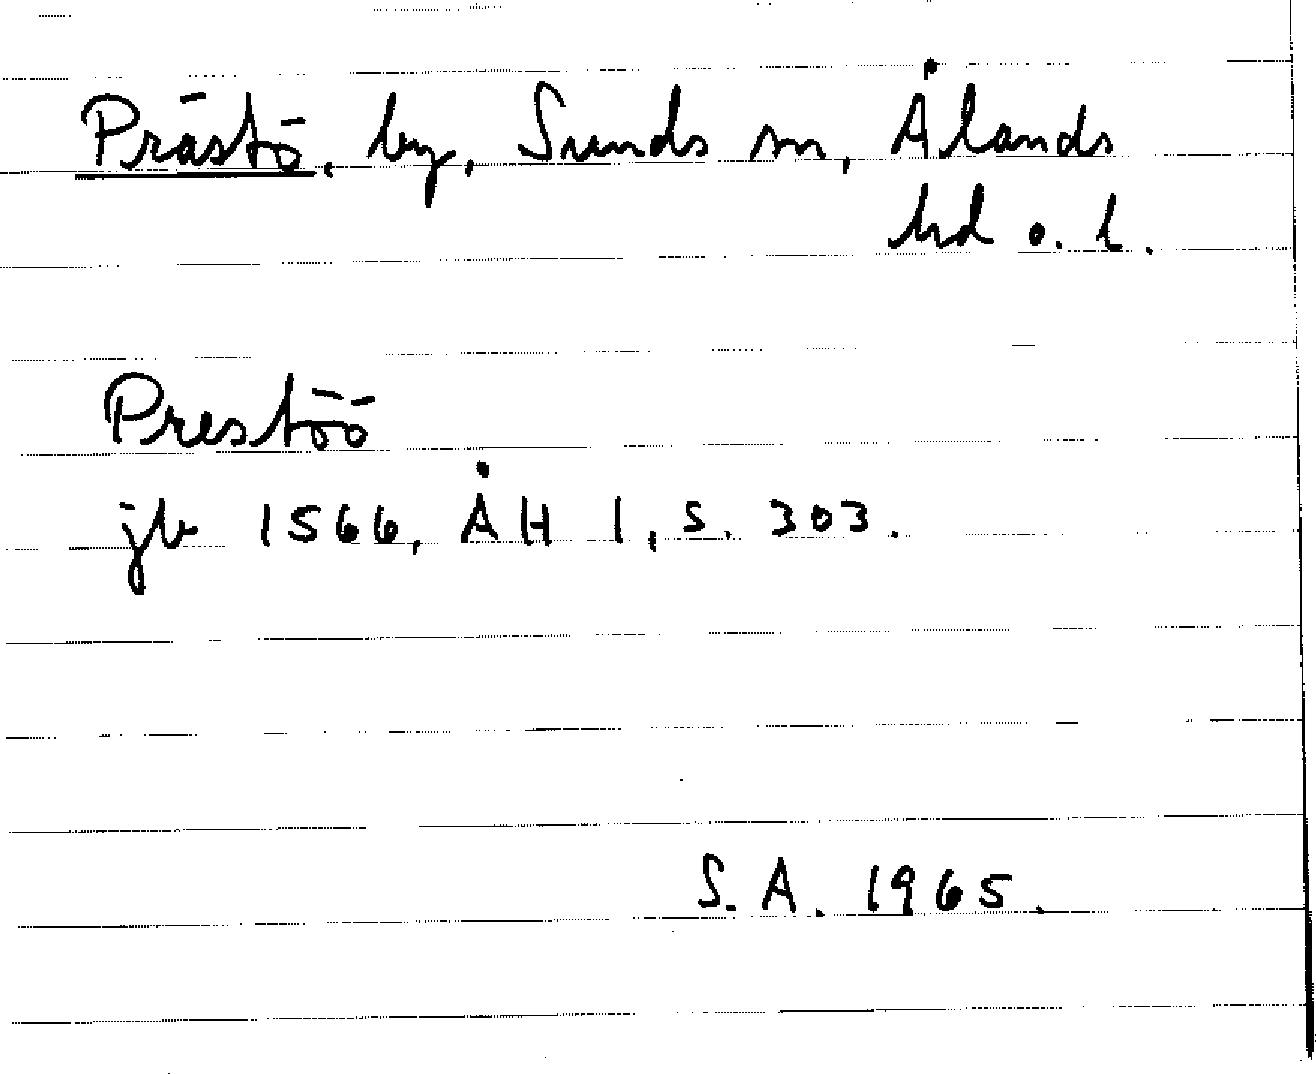 Prästö, by, Sunds sn, Ålands
hd o. l.
Prestöö
jb 1566, ÅH 1, s. 303.
S. A. 1965.